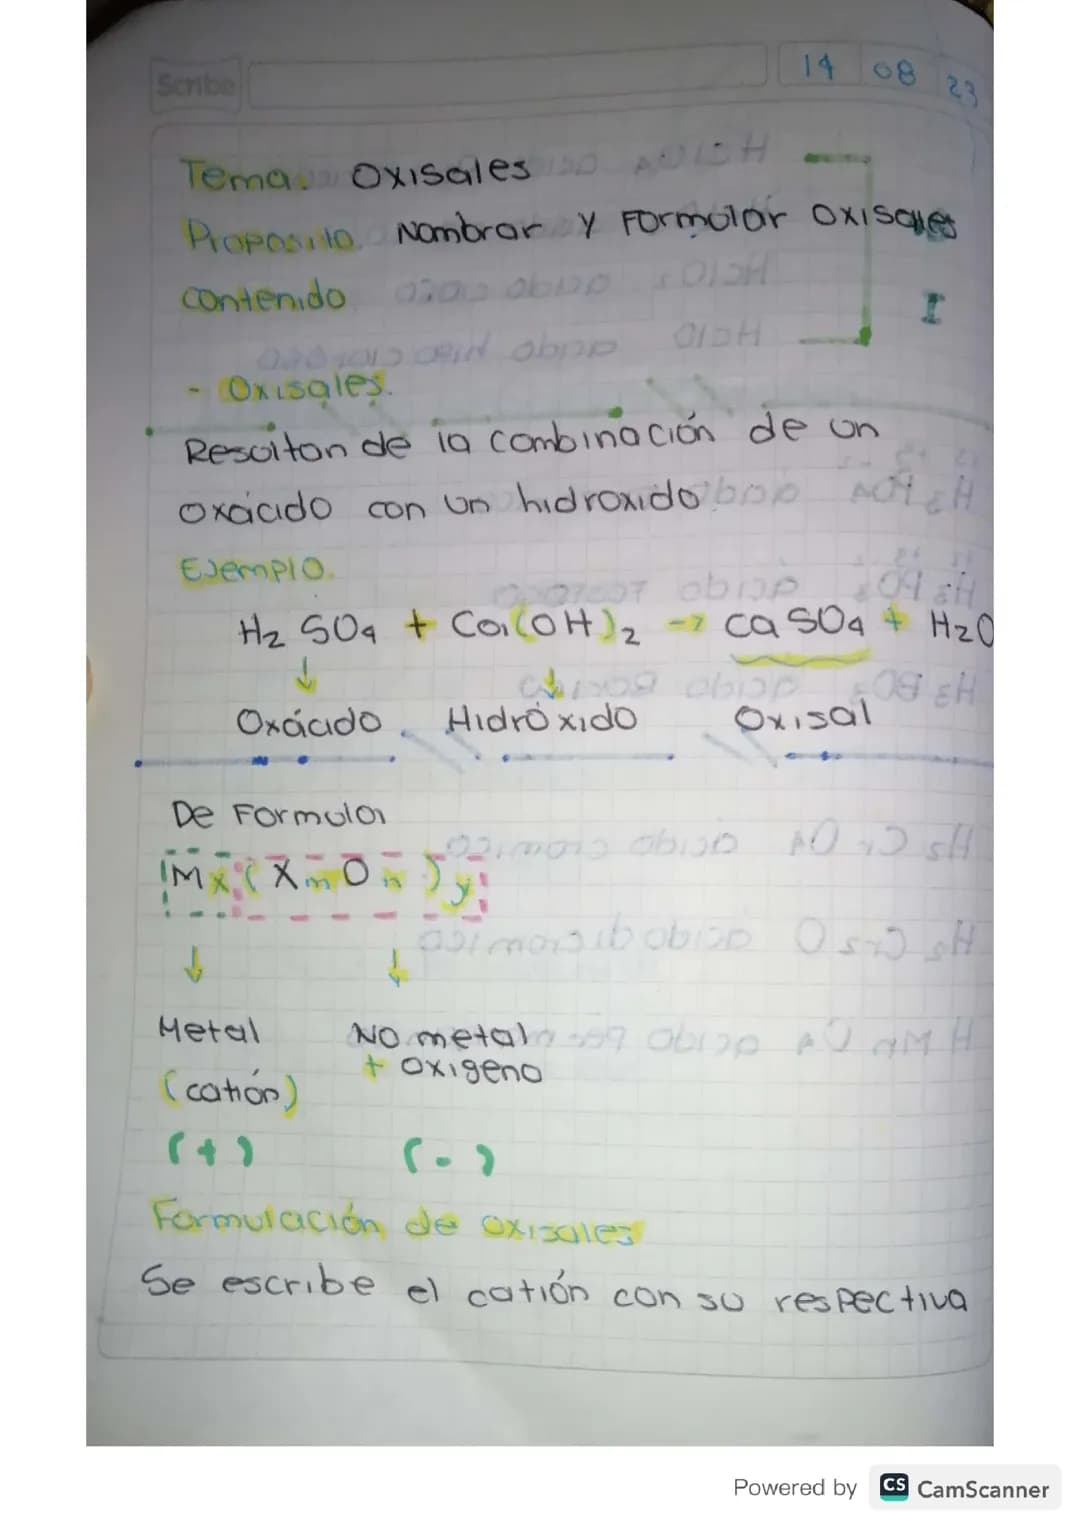 Scribe
14 08 23
Tema. Oxisales
Proposito. Nombrar y Formular Oxisales
contenido
I
- Oxisales.
Resultan de la combinación de un
oxácido con un hidroxido
Ejemplo.
H2 SO4 + Ca(OH)2 -> Ca SO4 + H2O
Oxácido Hidróxido Oxisal
De Formular
Mx(XmOn)y
Metal No metal
+ oxigeno
(catión)
(+) (-)
Formulación de oxisales
Se escribe el catión con su respectiva
Powered by CS CamScanner